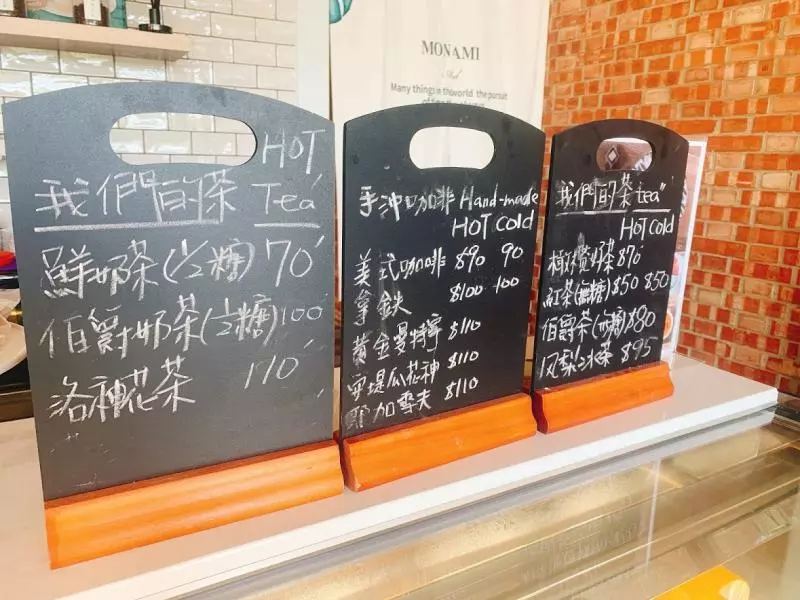 MONAMI
And
Many things in the world the pursuit
HOT
我們的茶 Tea
鮮奶茶(1/2糖) 70
伯爵奶茶(1/2糖) 100
洛神花茶 110
手沖咖啡 Hand-made
HOT Cold
美式咖啡 $90 90
拿鐵 $100 100
黃金曼特寧 $110
安堤瓜花神 $110
耶加雪夫 $110
我們的茶 tea
HOT Cold
奶茶 $70
紅茶(無糖) $50 $50
伯爵茶(1/2糖) $80
風梨冰茶 $95